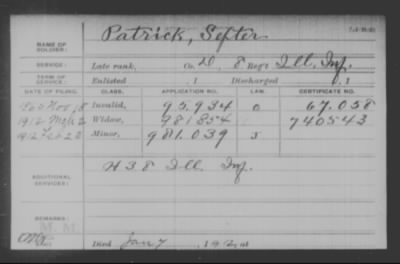 Patrick, Septer
NAME OF SOLDIER:
SERVICE: Late rank, Co. D, 8 Reg't Ill. Inf.
TERM OF SERVICE: Enlisted , 1 Discharged , 1
DATE OF FILING. CLASS. APPLICATION NO. LAW. CERTIFICATE NO.
Nov Invalid, 95.934 0 67.058
1912 Widow, 981854 740543
1912 Minor, 981.039 5
ADDITIONAL SERVICES: H 38 Ill. Inf.
REMARKS:
Died Jan 7, 1912, at